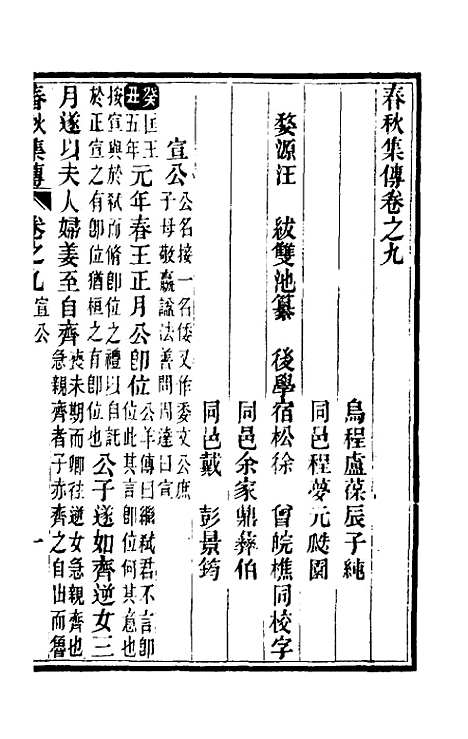 春秋集傳卷之九
烏程盧葆辰子純
同邑程夢元颷園
婺源汪　紱雙池纂　後學宿松徐　曾皖樵同校字
同邑余家鼎彝伯
同邑戴　彭景筠
宣公公名接一名倭又作委文公庶
子母敬嬴諡法善問周達曰宣
癸丑匡王五年元年春王正月公卽位公羊傳曰繼弑君不言卽
位此其言卽位何其意也
按宣與於弑而脩卽位之禮以自託
於正宣之有卽位猶桓之有卽位也公子遂如齊逆女三
月遂以夫人婦姜至自齊喪未期而卿往逆女急親齊也
急親齊者子赤齊之自出而魯
春秋集傳　卷之九　宣公　一